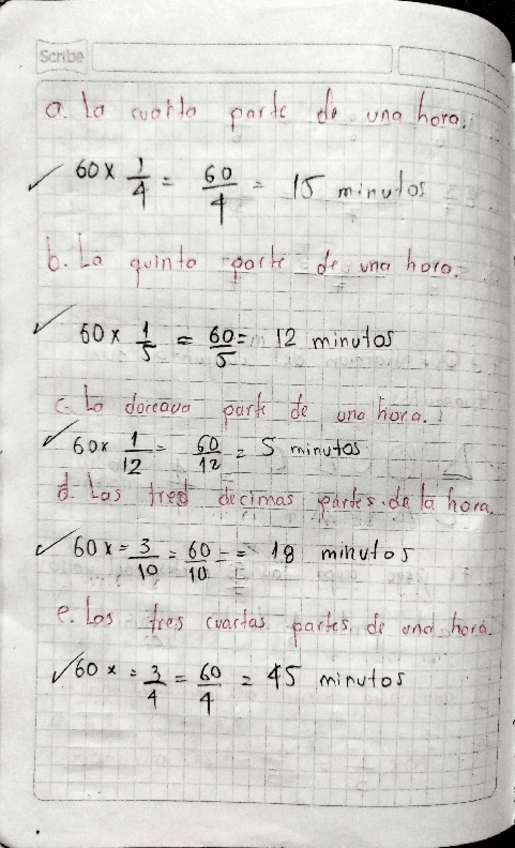 Scribe
a. la cuarta parte de una hora.
60 x 1/4 = 60/4 = 15 minutos
b. La quinta parte de una hora.
60 x 1/5 = 60/5 = 12 minutos
c. La doceava parte de una hora.
60x 1/12 = 60/12 = 5 minutos
d. Las tres decimas partes de la hora.
60 x = 3/10 = 60/10 = = 18 minutos
e. Las tres cuartas partes de una hora.
60 x = 3/4 = 60/4 = 45 minutos